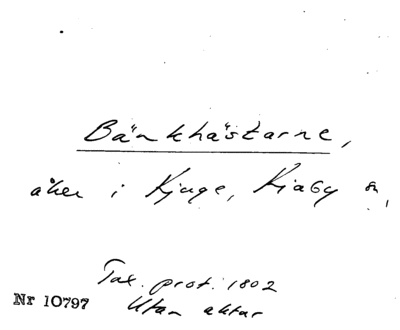 Bänkhästarne,
åker i Kjuge, Kiaby sn,
Tax. prot. 1802
Nr 10797 Utan aktar